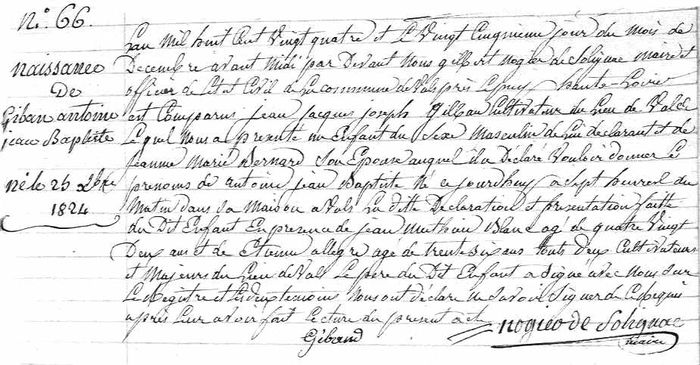 N.º 66
naissance
De
Giban antoine
jean Baptiste
né le 25 Xbre
1824
L'an mil huit Cent Vingt quatre et Le Vingt Cinquieme jour du mois de
Decembre avant midi par Devant Nous gilbert nogier de Solignac maire et
officier de l'etat Civil de La commune de Vals près Lepuy haute Loire
est Comparus jean jacques joseph Gibau Cultivateur du Lieu de Vals
Lequel Nous a presenté un Enfant du Sexe Masculin de Lui declarant et de
jeanne Marie Bernard Son Epouse auquel il a Déclaré Vouloir donner Le
prenoms de antoine jean Baptiste Né cejourdhuy a Sept heures du
Matin dans Sa Maison a Vals La ditte Declaration et presentation faite
du Dit Enfant En presence de jean Blanc agé de quatre Vingt
Deux ans et de Etienne allegre agé de trente Six ans touts deux Cultivateurs
et Majeurs du Lieu de Vals Le pere du Dit Enfant a Signé avec Nous Sur
Le Registre et Les deux temoins Nous ont déclaré ne Savoir Signer de Ce Requis
après Leur avoir fait Lecture du present acte
Giband nogier de Solignac
maire